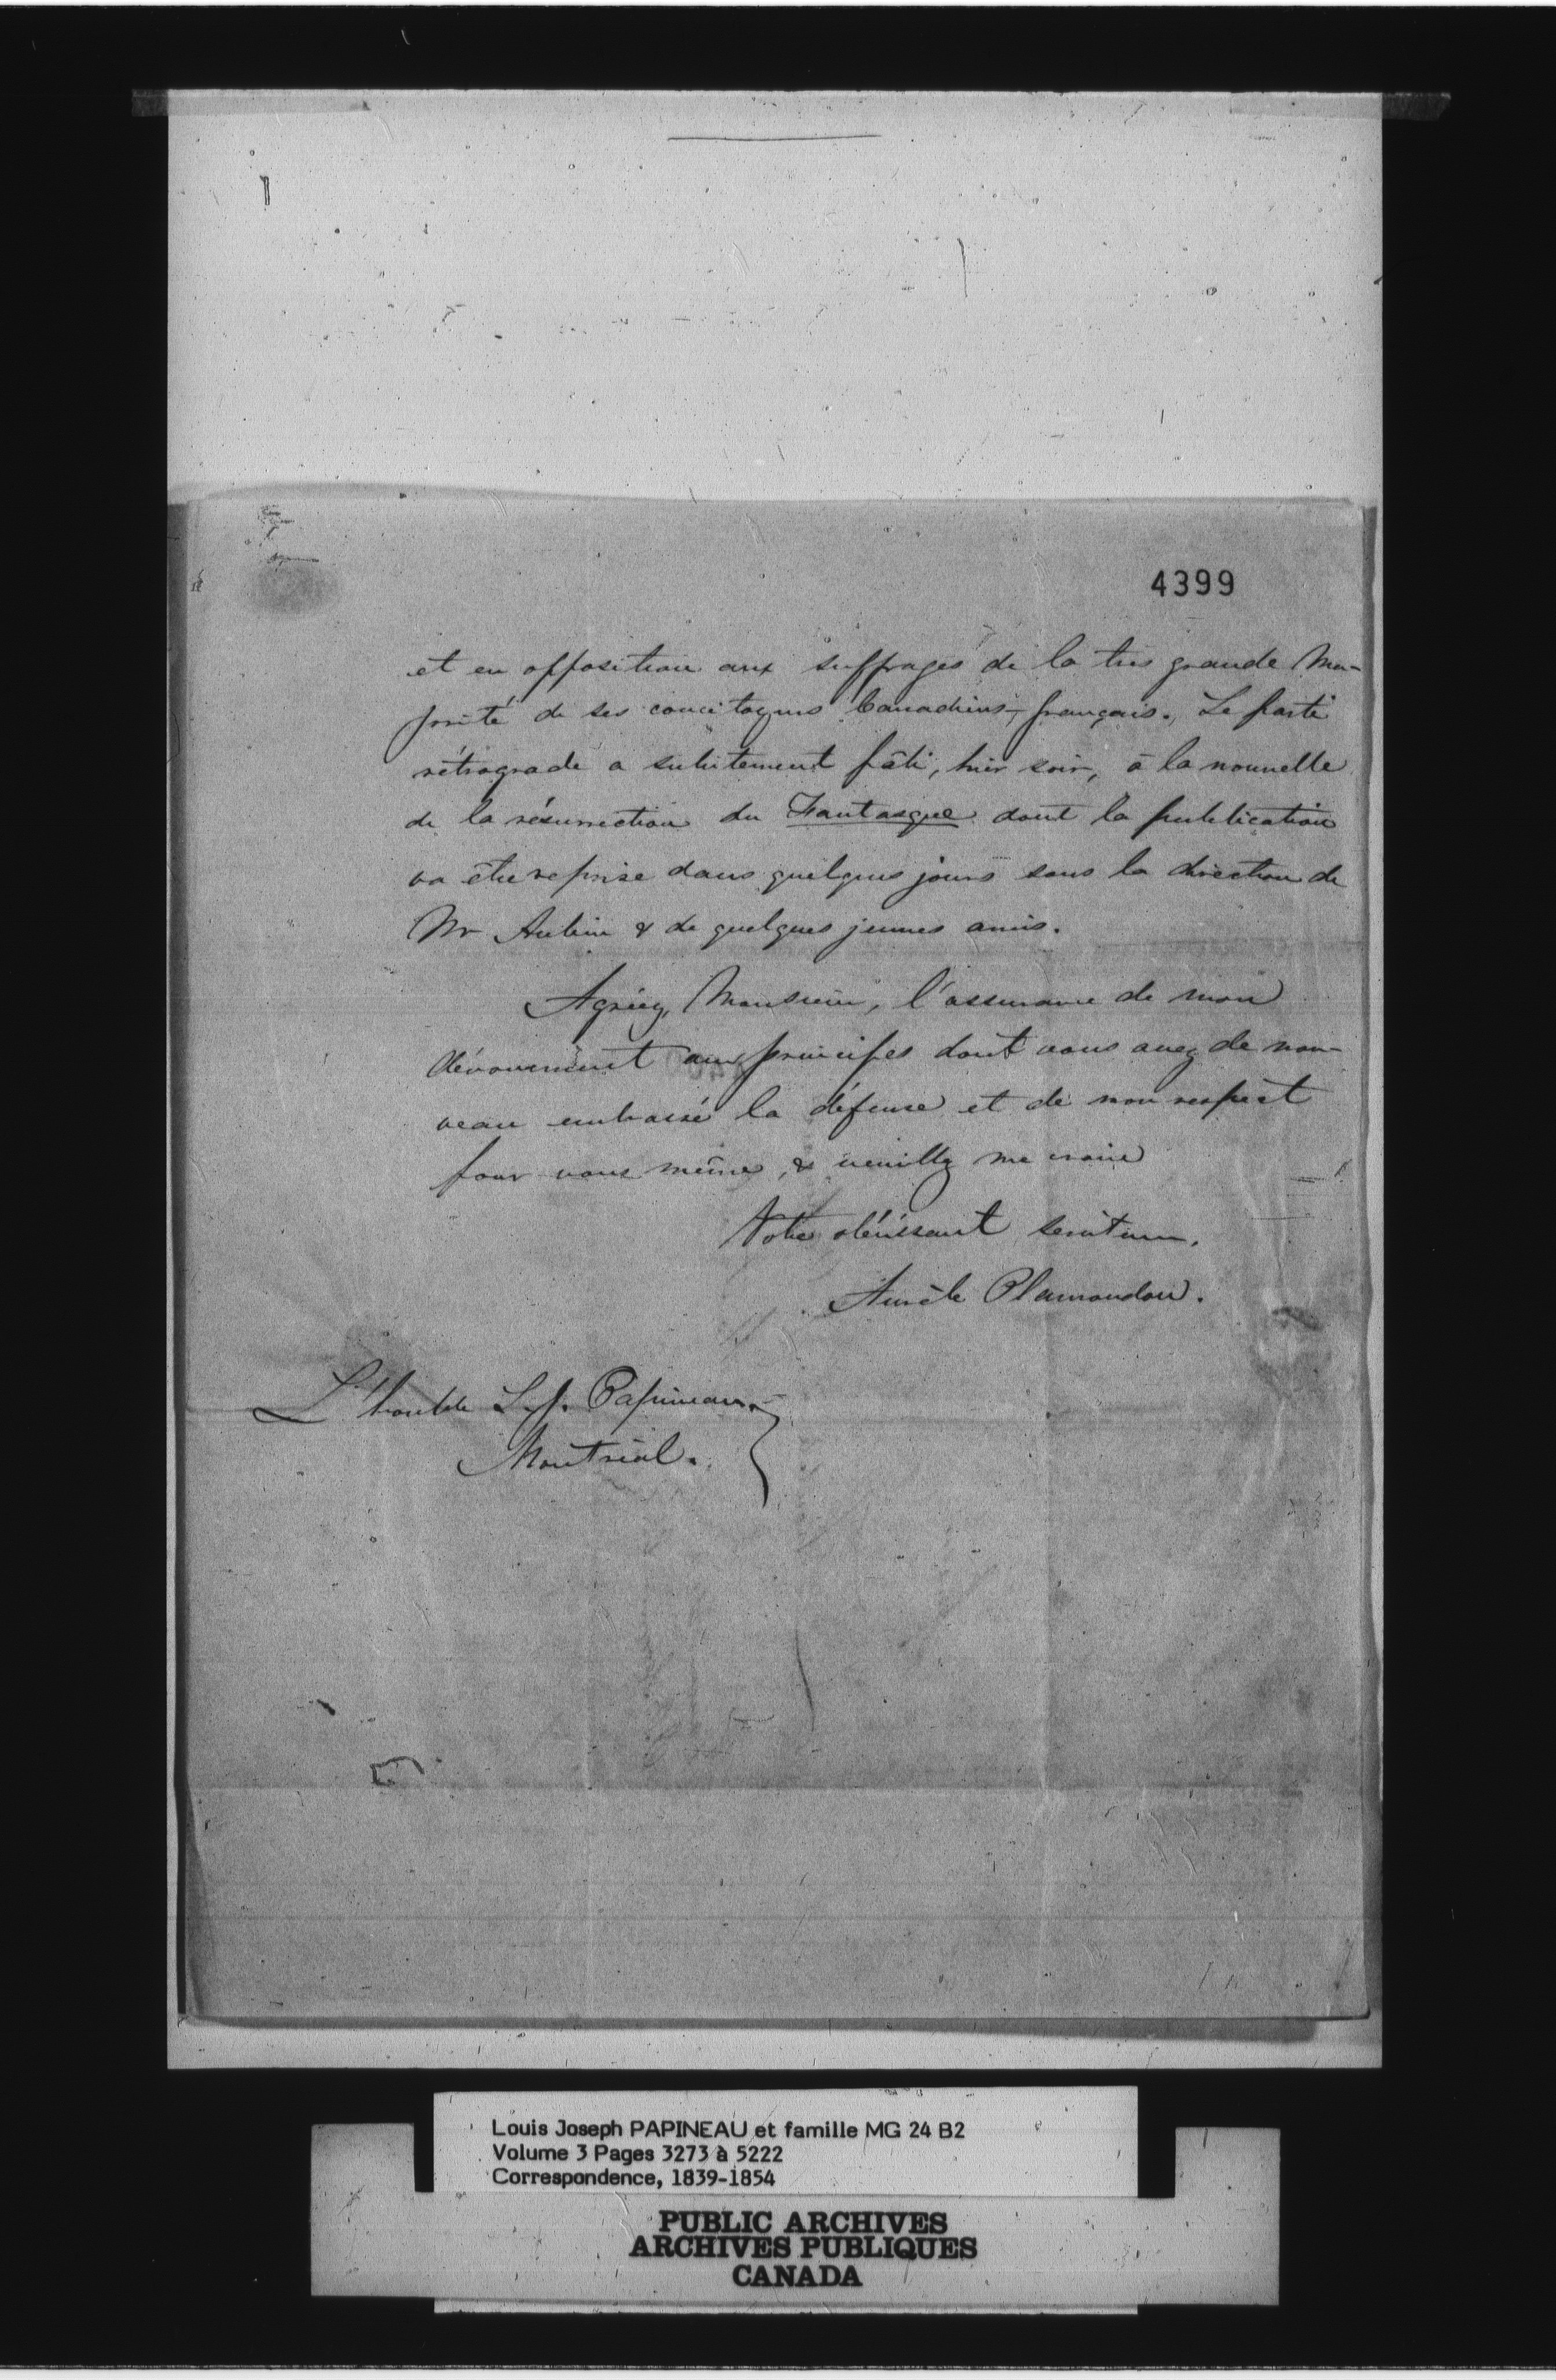 4399
et en opposition aux suffrages de la très grande Ma-
jorité de ses concitoyens Canadiens-français. Le parti
rétrograde a subitement pâli, hier soir, à la nouvelle
de la résurrection du Fantasque dont la publication
va être reprise dans quelques jours sous la direction de
Mr Aubin & de quelques jeunes amis.
Agréez, Monsieur, l'assurance de mon
dévouement aux principes dont vous avez de nou-
veau embrassé la défense et de mon respect
pour vous même, & veuillez me croire
Votre obéissant serviteur.
Aurèle Plamondon.
L'honble L. J. Papineau
Montréal.
Louis Joseph PAPINEAU et famille MG 24 B2
Volume 3 Pages 3273 à 5222
Correspondence, 1839-1854
PUBLIC ARCHIVES
ARCHIVES PUBLIQUES
CANADA